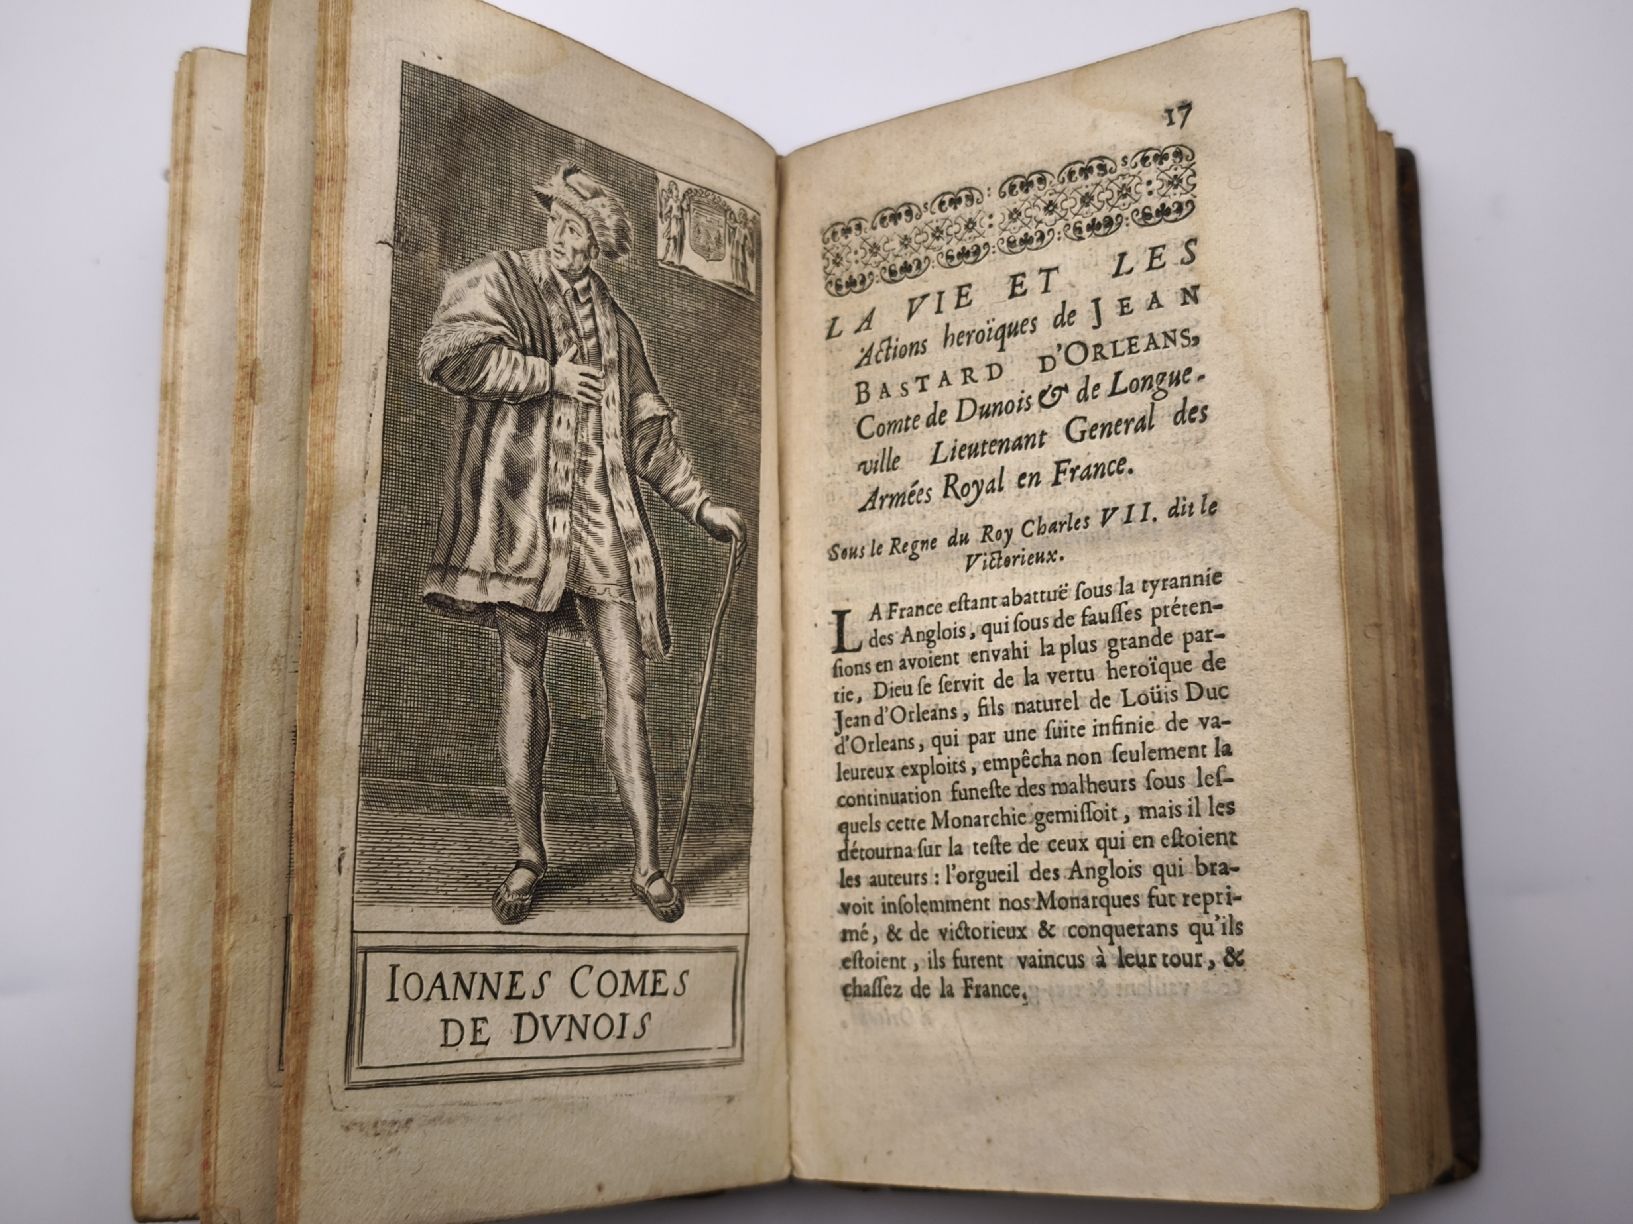 IOANNES COMES
DE DVNOIS
17
LA VIE ET LES
Actions heroïques de JEAN
BASTARD D'ORLEANS,
Comte de Dunois & de Longue-
ville Lieutenant General des
Armées Royal en France.
Sous le Regne du Roy Charles VII. dit le
Victorieux.
LA France eſtant abattuë ſous la tyrannie
des Anglois, qui ſous de fauſſes préten-
ſions en avoient envahi la plus grande par-
tie, Dieu ſe ſervit de la vertu heroïque de
Jean d'Orleans, fils naturel de Loüis Duc
d'Orleans, qui par une ſuite infinie de va-
leureux exploits, empêcha non ſeulement la
continuation funeſte des malheurs ſous leſ-
quels cette Monarchie gemiſſoit, mais il les
détourna ſur la teſte de ceux qui en eſtoient
les auteurs : l'orgueil des Anglois qui bra-
voit inſolemment nos Monarques fut repri-
mé, & de victorieux & conquerans qu'ils
eſtoient, ils furent vaincus à leur tour, &
chaſſez de la France.